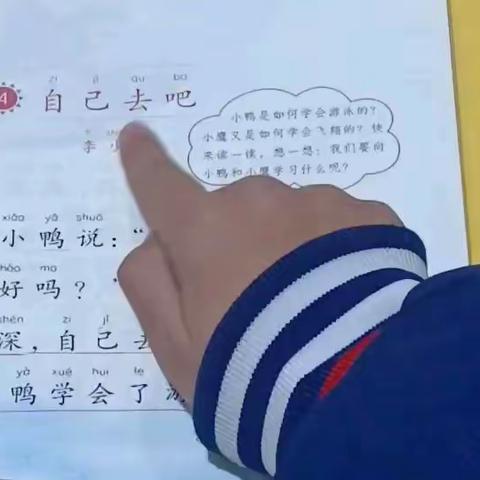 4
zì jǐ qù ba
自己去吧
李少
小鸭是如何学会游泳的？
小鹰又是如何学会飞翔的？快
来读一读，想一想：我们要向
小鸭和小鹰学习什么呢？
xiǎo yā shuō
小鸭说：“
hǎo ma
好吗？
shēn zì jǐ
深，自己去
yā xué huì le
鸭学会了游